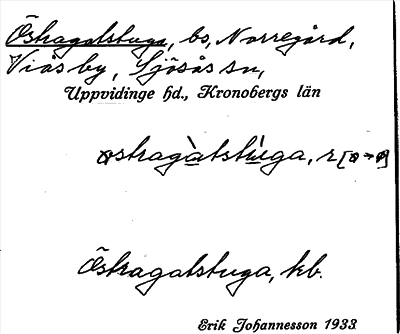 Östragatstuga, bs, Norregård,
Viås by, Sjösås sn,
Uppvidinge hd., Kronobergs län
østragàtstùga, r
Östragatstuga, kb.
Erik Johannesson 1933